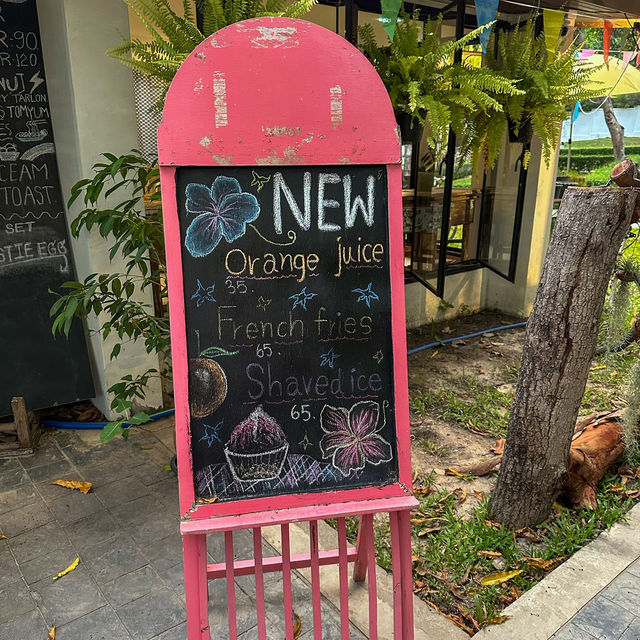 R.90
R 120
NUT
Y TARLON
TOMYUM
CEAM
TOAST.
SET
STIE EGG
NEW
Orange juice
35.
French fries
65.
Shaved ice
65.